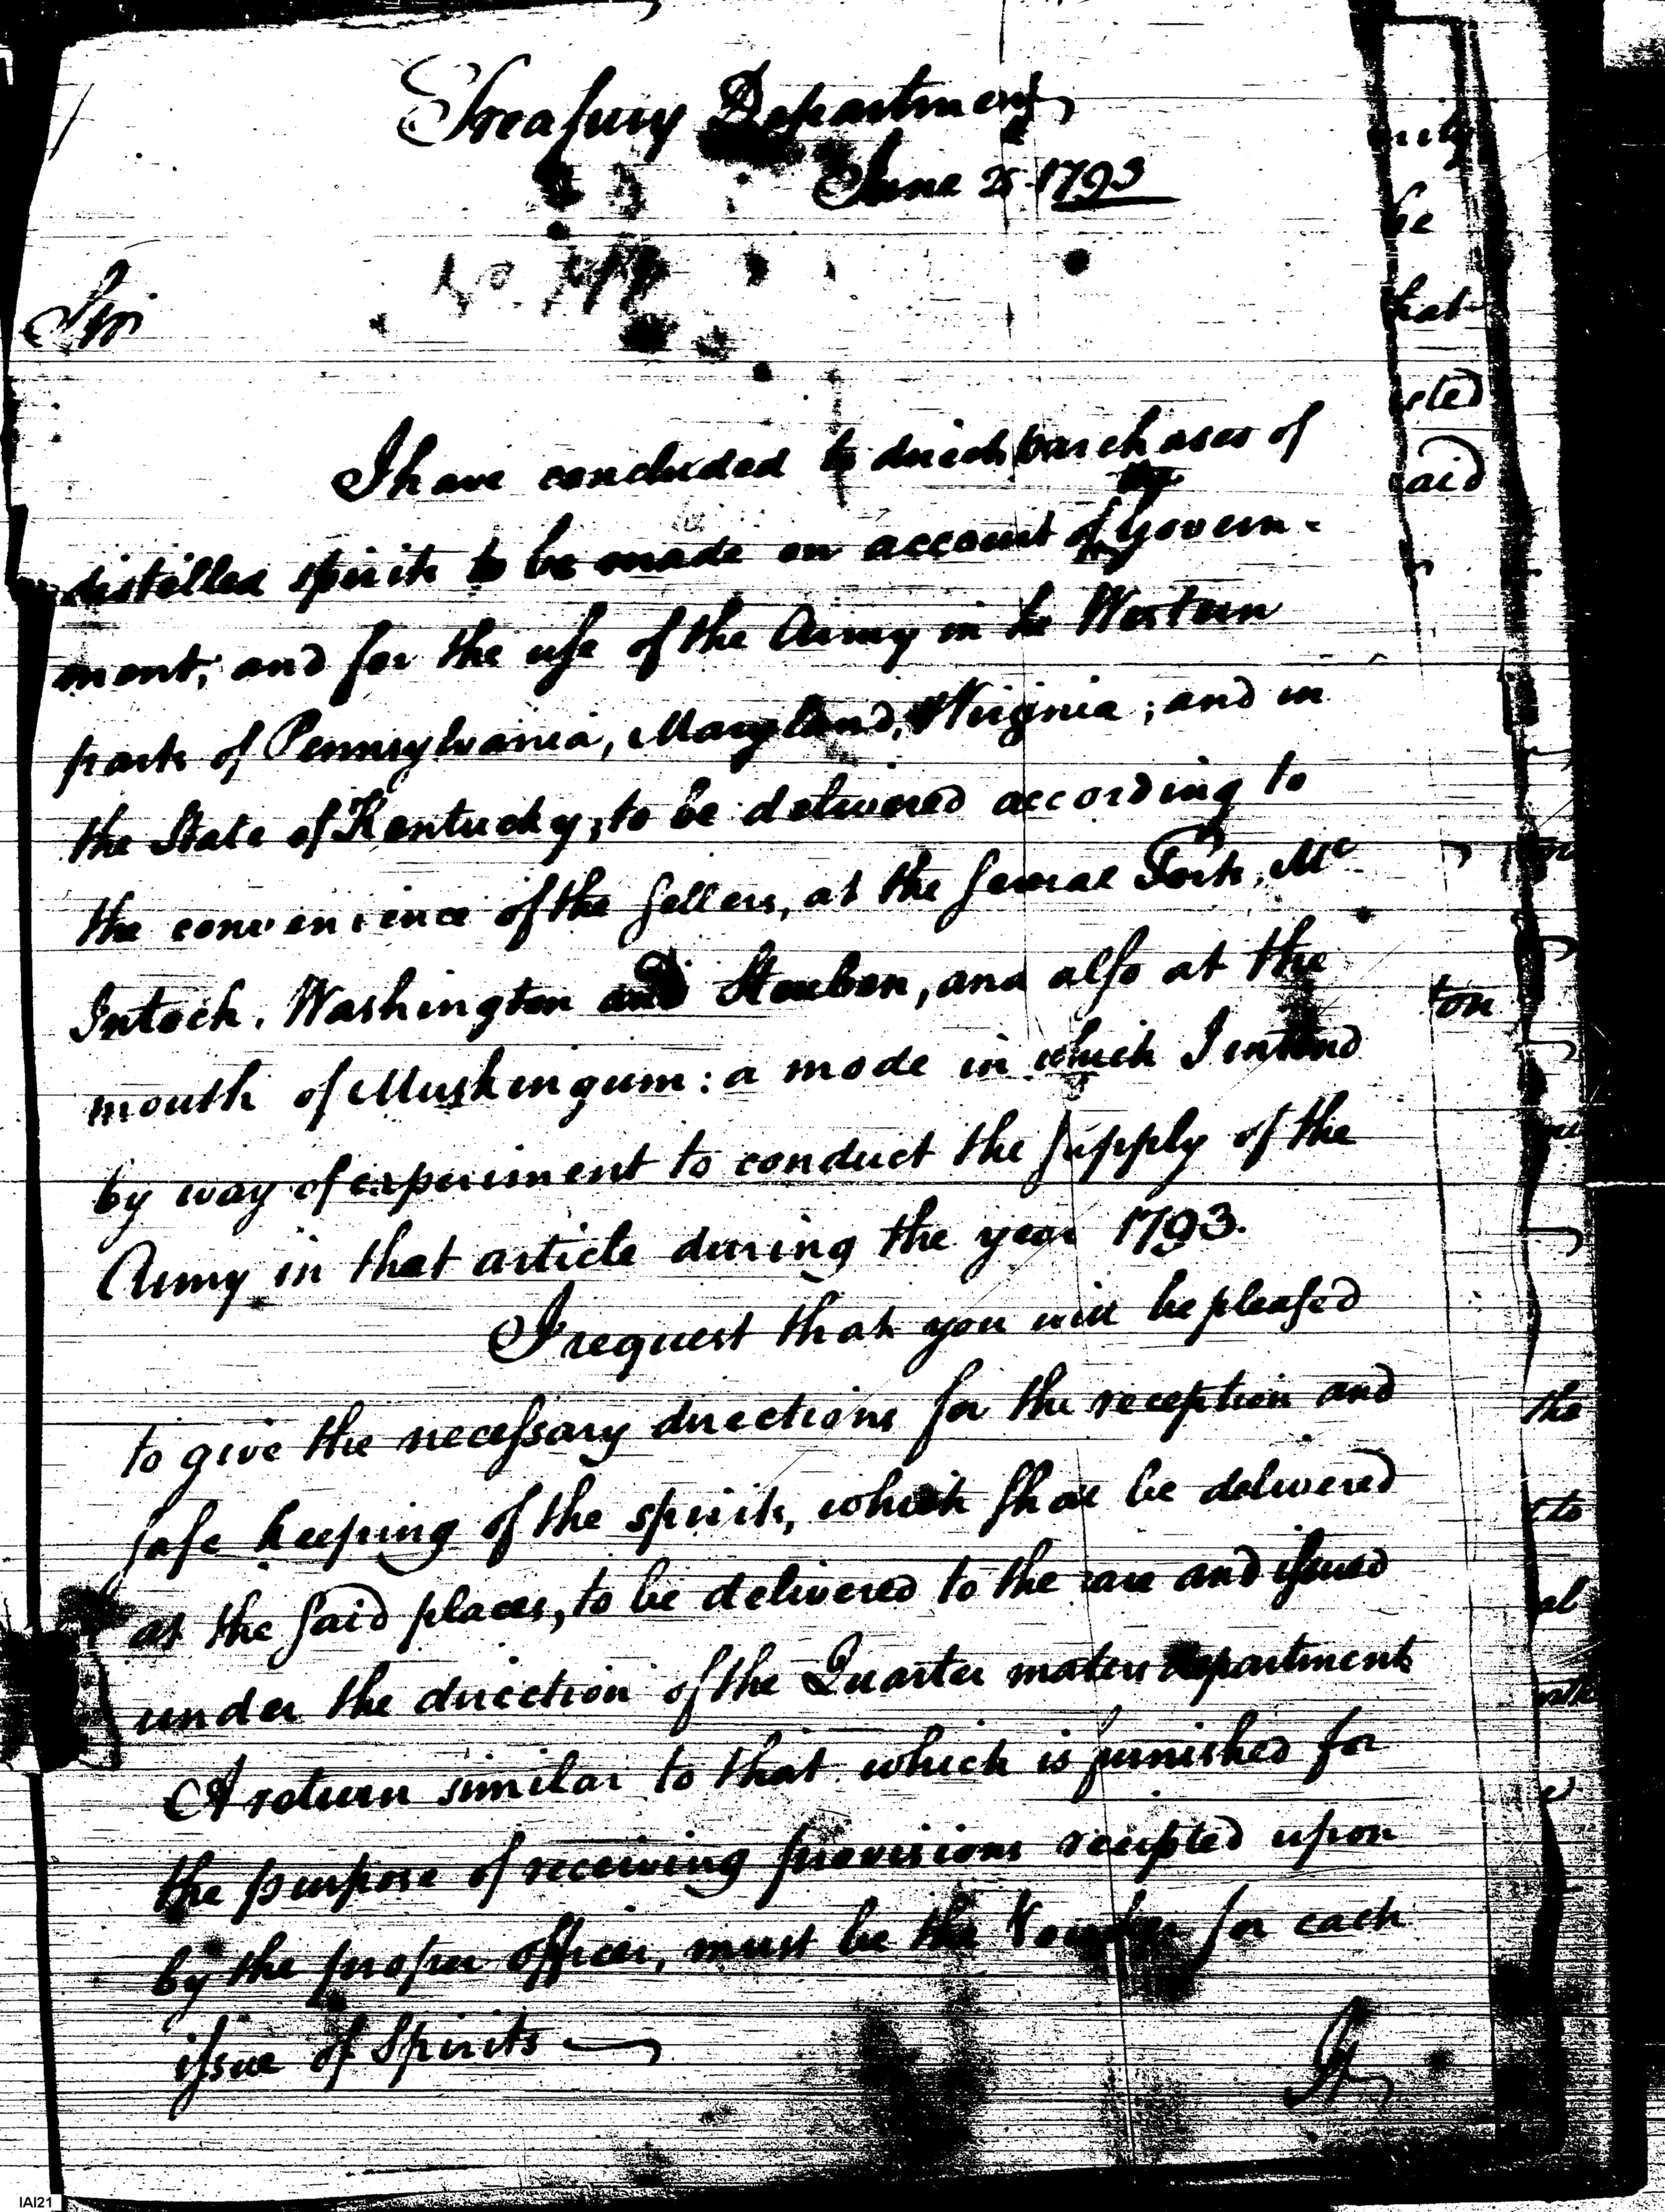 Treasury Department
June 25 1793
No.
Sir
I have concluded to direct purchases of
the
distilled spirits to be made on account of Govern-
ment; and for the use of the Army in the Western
parts of Pennsylvania, Maryland, Virginia; and in
the State of Kentucky, to be delivered according to
the convenience of the Sellers, at the Several Forts, Mc
Intoch, Washington and Steuben, and also at the
mouth of Muskingum: a mode in which I intend
by way of experiment to conduct the supply of the
Army in that article during the year 1793.
I request that you will be pleased
to give the necessary directions for the reception and
safe keeping of the spirits, which shall be delivered
at the said places, to be delivered to the care and issued
under the direction of the Quarter masters department
A return similar to that which is furnished for
the purpose of receiving provisions receipted upon
by the proper officer, must be the Voucher for each
issue of Spirits
It
he
hat
cted
said
ton
the
to
al
IAI21